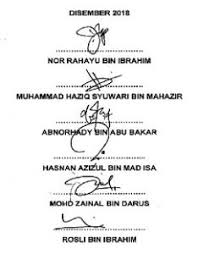 DISEMBER 2018
NOR RAHAYU BIN IBRAHIM
MUHAMMAD HAZIQ SYUWARI BIN MAHAZIR
ABNORHADY BIN ABU BAKAR
HASNAN AZIZUL BIN MAD ISA
MOHD ZAINAL BIN DARUS
ROSLI BIN IBRAHIM